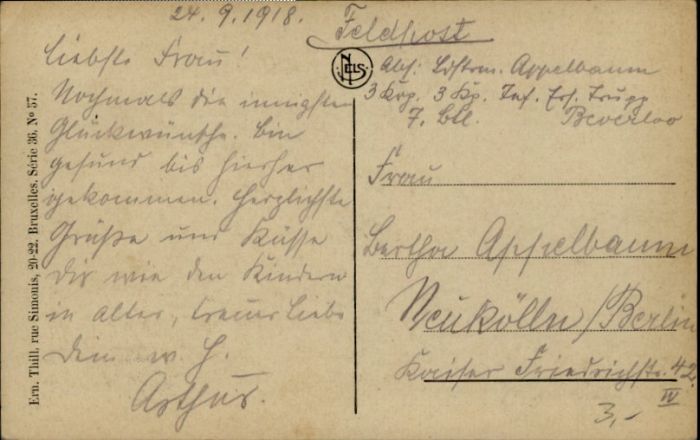 24. 9. 1918.
Feldpost
Liebste Frau!
Nochmals die innigsten
Glückwünsche. Bin
gesund bis hierher
gekommen. Herzlichste
Grüße und Küsse
Dir wie den Kindern
in alter, treuer Liebe
Dein
Arthur.
NELS
Abs: Ldstrm. Appelbaum
3 Krp. 3 Kp. Inf. Ers. Trupp
7. Btl. Beverloo
Frau
Bertha Appelbaum
Neukölln/Berlin
Kaiser Friedrichstr. 42
IV
3,-
Ern. Thill, rue Simonis, 20-22, Bruxelles. Série 36, No 57.